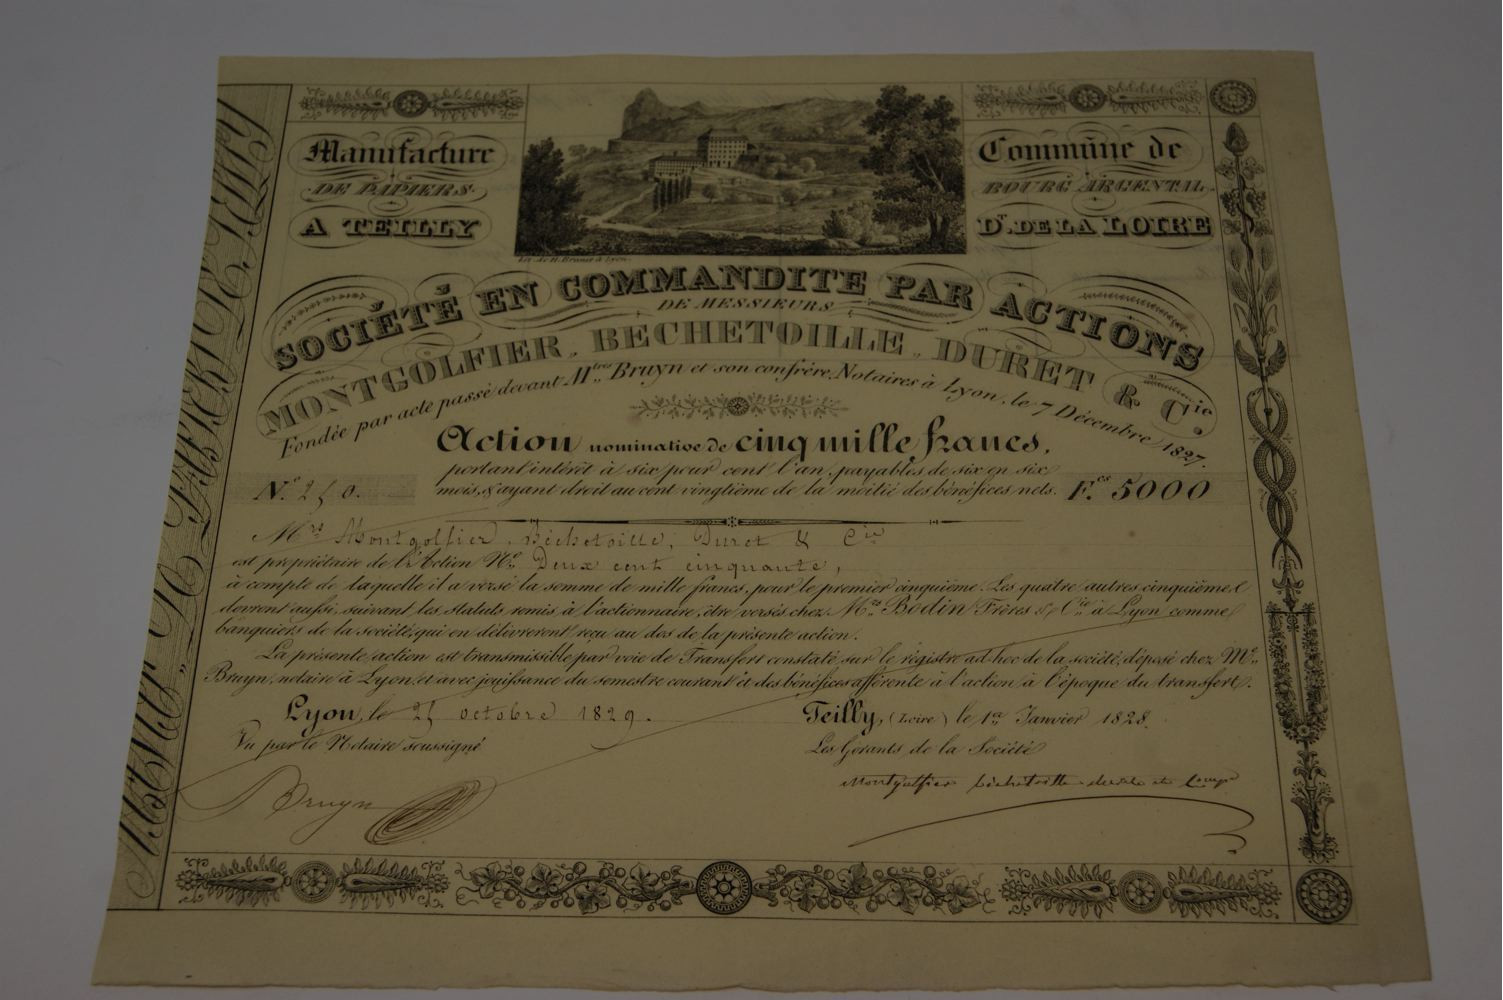 Manufacture
DE PAPIERS
A TEILLY
Commune de
BOURG ARGENTAL
Dt. DE LA LOIRE
Lit. de H. Brunet à Lyon.
SOCIÉTÉ EN COMMANDITE PAR ACTIONS
DE MESSIEURS
MONTGOLFIER, BECHETOILLE, DURET & Cie.
Fondée par acte passé devant Mtres Bruyn et son confrère, Notaires à Lyon, le 7 Décembre 1827.
Action nominative de cinq mille francs,
portant intérêt à six pour cent l'an, payables de six en six
mois, & ayant droit au cent vingtième de la moitié des bénéfices nets.
N.o 250.
F.cs 5000
Mrs Montgolfier, Béchetoille, Duret & Cie
est propriétaire de l'Action No Deux cent cinquante,
à compte de laquelle il a versé la somme de mille francs, pour le premier cinquième. Les quatre autres cinquièmes
devront aussi, suivant les statuts remis à l'actionnaire, être versés chez Mrs Bodin Frères & Cie à Lyon comme
banquiers de la société, qui en délivreront reçu au dos de la présente action.
La présente action est transmissible par voie de Transfert constaté sur le régistre ad-hoc de la société, déposé chez Me
Bruyn, notaire à Lyon, et avec jouissance du semestre courant et des bénéfices afférente à l'action à l'époque du transfert.
Lyon, le 25 octobre 1829.
Vu par le Notaire soussigné
Bruyn
Teilly, (Loire) le 1er Janvier 1828.
Les Gérants de la Société
Montgolfier Béchetoille duret et Comp